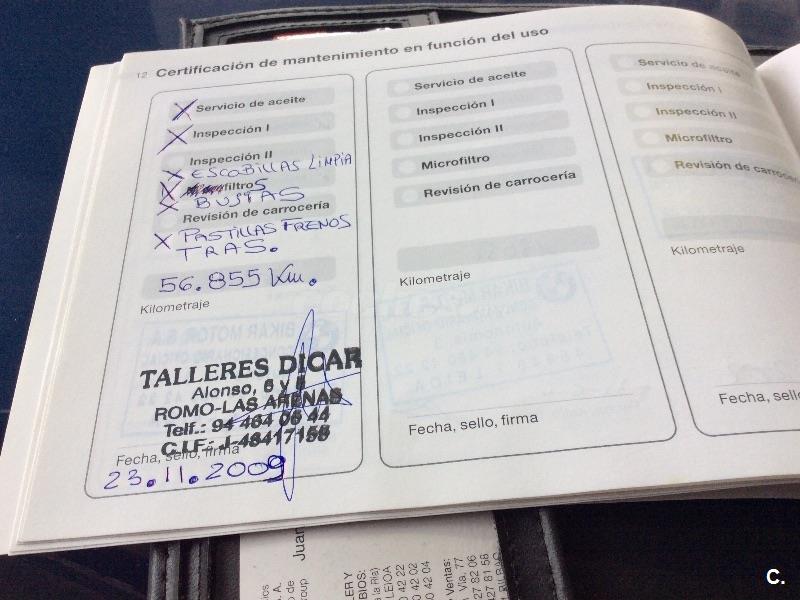 12 Certificación de mantenimiento en función del uso
X Servicio de aceite
X Inspección I
Inspección II
X ESCOBILLAS LIMPIA
X filtros
X BUJIAS
Revisión de carrocería
X PASTILLAS FRENOS
TRAS.
56.855 Km.
Kilometraje
TALLERES DICAR
Alonso, 6 y 8
ROMO-LAS ARENAS
Telf.: 94 464 06 44
C.I.F.: J-48417158
Fecha, sello, firma
23.11.2009
Servicio de aceite
Inspección I
Inspección II
Microfiltro
Revisión de carrocería
Kilometraje
Fecha, sello, firma
Servicio de aceite
Inspección I
Inspección II
Microfiltro
Revisión de carrocer
Kilometraje
Fecha, sello
Juan
LEIOA
0 42 22
0 42 02
0 42 04
Ventas:
Vía, 77
427 82 06
427 81 58
C.